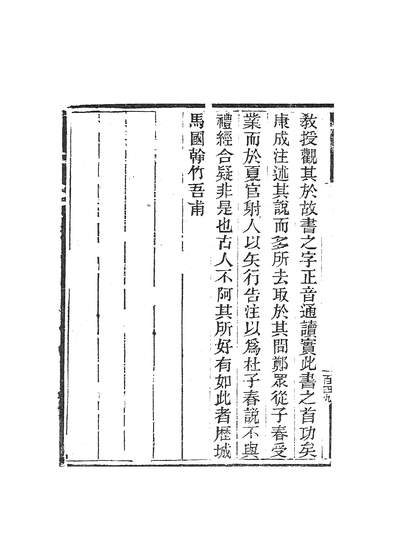 敎授觀其於故書之字正音通讀實此書之首功矣
康成注述其說而多所去取於其間鄭眾從子春受
業而於夏官射人以矢行告注以爲杜子春說不與
禮經合疑非是也古人不阿其所好有如此者歷城
馬國翰竹吾甫